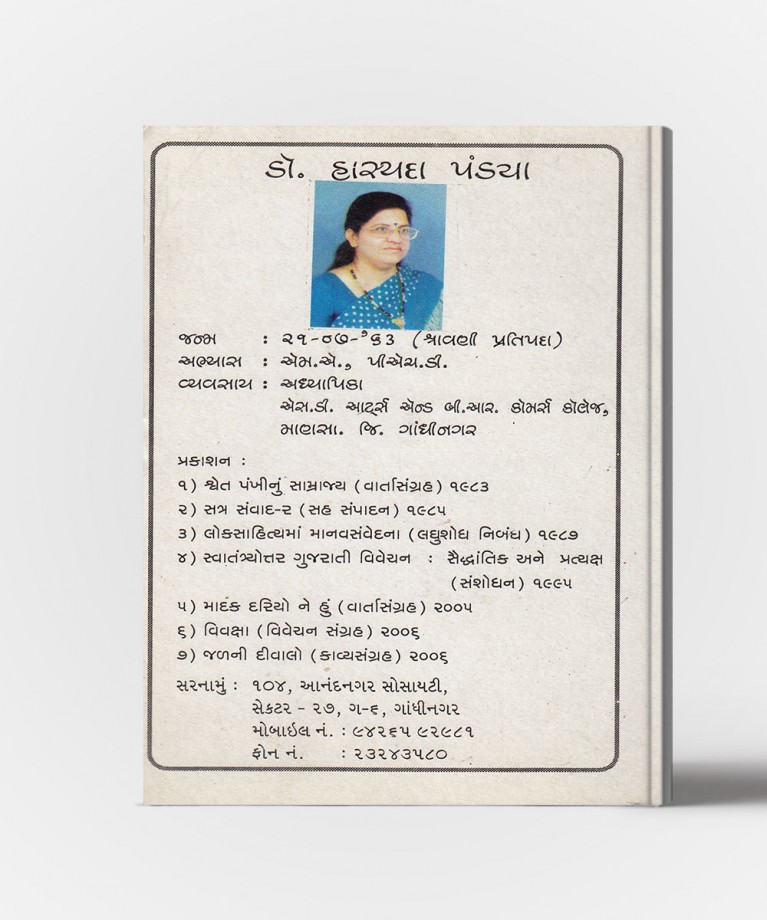 ડૉ. હાસ્યદા પંડયા
જન્મ : ૨૧-૦૭-'૬૩ (શ્રાવણી પ્રતિપદા)
અભ્યાસ : એમ.એ., પીએચ.ડી.
વ્યવસાય : અધ્યાપિકા
એસ.ડી. આર્ટ્સ એન્ડ બી.આર. કોમર્સ કૉલેજ,
માણસા. જિ. ગાંધીનગર
પ્રકાશન :
૧) શ્વેત પંખીનું સામ્રાજ્ય (વાર્તાસંગ્રહ) ૧૯૮૩
૨) સત્ર સંવાદ-૨ (સહ સંપાદન) ૧૯૮૫
૩) લોકસાહિત્યમાં માનવસંવેદના (લઘુશોધ નિબંધ) ૧૯૮૭
૪) સ્વાતંત્ર્યોત્તર ગુજરાતી વિવેચન : સૈદ્ધાંતિક અને પ્રત્યક્ષ
(સંશોધન) ૧૯૯૫
૫) માદક દરિયો ને હું (વાર્તાસંગ્રહ) ૨૦૦૫
૬) વિવક્ષા (વિવેચન સંગ્રહ) ૨૦૦૬
૭) જળની દીવાલો (કાવ્યસંગ્રહ) ૨૦૦૬
સરનામું : ૧૦૪, આનંદનગર સોસાયટી,
સેકટર - ૨૭, ગ-૬, ગાંધીનગર
મોબાઇલ નં. : ૯૪૨૬૫ ૯૨૯૮૧
ફોન નં. : ૨૩૨૪૩૫૮૦